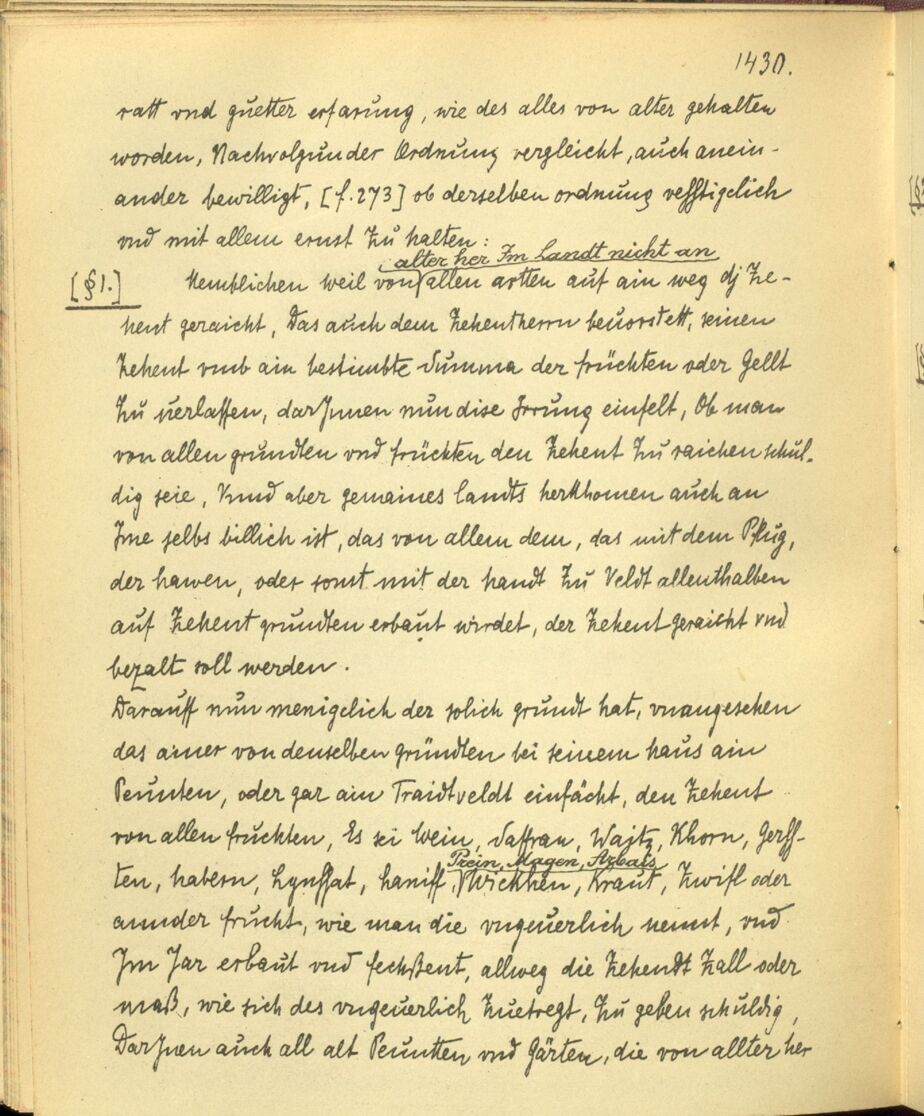 1430.
ratt vnd guetter erfarung, wie des alles von alter gehalten
worden, Nachvolgunder Ordnung vergleicht, auch anein-
ander bewilligt, [f. 273] ob derselben ordnung vesstigclich
vnd mit allem ernst Zu halten:
alter her Im Landt nicht an
[§ 1.] Nemblichen weil von allen artten auf ain weg dj Ze-
hent geraicht, Das auch dem Zehentherrn beuorstett, seinen
Zehent vmb ain bestimbte Summa der früchten oder Gellt
Zu verlassen, darJnnen nun dise Jrrung einfelt, Ob man
von allen grundten vnd früchten den Zehent Zu raichen schul-
dig seie, Vnnd aber gemaines landts herkhomen auch an
Jme selbs billich ist, das von allem dem, das mit dem Pflug,
der hawen, oder sonst mit der handt Zu Veldt allenthalben
auf Zehent grundten erbaut wirdet, der Zehent geraicht vnd
bezalt soll werden.
Darauff nun menigclich der solich grundt hat, vnangesehen
das ainer von denselben gründten bei seinem haus ain
Peunten, oder gar ain Traidtveldt einfächt, den Zehent
von allen fruchten, Es sei Wein, Saffran, Waitz, Khorn, Gerss-
Prein, Magen, Arbais
ten, habern, Lynssat, haniff, Wickhen, Kraut, Zwifl oder
annder frucht, wie man die vngeuerlich nennt, vnd
Im Jar erbaut vnd fechßent, allweg die Zehendt Zall oder
maß, wie sich des vngeuerlich Zuetregt, Zu geben schuldig,
DarJnen auch all alt Peuntten vnd Gärten, die von allter her